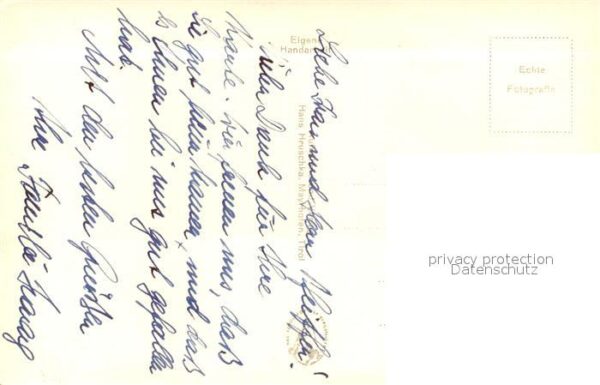 Liebe Frau und Herr
Vielen Dank für Ihre
Karte. Wir freuen uns, daß
Sie gut heim kamen und daß
es Ihnen bei uns gut gefallen
hat.
Mit den besten Grüßen
Ihre Familie
Eigen
Hander
Hans Hruschka, Mayrhofen, Tirol
Echte
Fotografie
privacy protection
Datenschutz